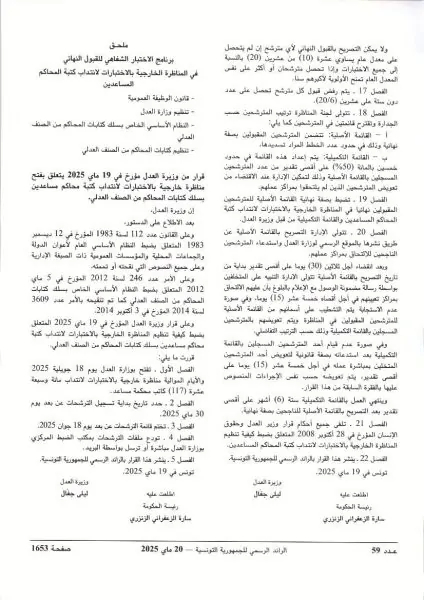 ولا يمكن التصريح بالقبول النهائي لأي مترشح إن لم يتحصل
على معدل عام يساوي عشرة (10) من عشرين (20) بالنسبة
إلى جميع الاختبارات وإذا تحصل مترشحان أو أكثر على نفس
المعدل العام تمنح الأولوية لأكبرهم سنا.
الفصل 17 ـ يرفض قبول كل مترشح تحصل على عدد
دون ستة على عشرين (20/6).
الفصل 18 ـ تتولى لجنة المناظرة ترتيب المترشحين حسب
الجدارة وتقترح قائمتين في المترشحين كما يلي:
أ – القائمة الأصلية: تتضمن المترشحين المقبولين بصفة
نهائية وذلك في حدود عدد الخطط المراد تسديدها.
ب – القائمة التكميلية: يتم إعداد هذه القائمة في حدود
خمسين بالمائة (50%) على أقصى تقدير من عدد المترشحين
المسجلين بالقائمة الأصلية وذلك لتمكين الإدارة عند الاقتضاء من
تعويض المترشحين الذين لم يلتحقوا بمراكز عملهم.
الفصل 19 ـ تضبط بصفة نهائية القائمة الأصلية للمترشحين
المقبولين نهائيا في المناظرة الخارجية بالاختبارات لانتداب كتبة
المحاكم المساعدين والقائمة التكميلية من قبل وزيرة العدل.
الفصل 20 ـ تتولى الإدارة التصريح بالقائمة الأصلية عن
طريق نشرها بالموقع الرسمي لوزارة العدل واستدعاء المترشحين
الناجحين للالتحاق بمراكز عملهم.
وبعد انقضاء أجل ثلاثين (30) يوما على أقصى تقدير بداية من
تاريخ التصريح بالقائمة الأصلية تتولى الإدارة التنبيه على المتخلفين
بواسطة رسالة مضمونة الوصول مع الإعلام بالبلوغ بأن عليهم الالتحاق
بمراكز تعيينهم في أجل أقصاه خمسة عشر (15) يوما، وفي صورة
عدم الاستجابة يتم التشطيب على أسمائهم من القائمة الأصلية
للمترشحين المقبولين في المناظرة ويتم تعويضهم بالمترشحين
المسجلين بالقائمة التكميلية وذلك حسب الترتيب التفاضلي.
وفي صورة عدم قيام أحد المترشحين المسجلين بالقائمة
التكميلية بعد استدعائه بصفة قانونية لتعويض أحد المترشحين
المتخلفين بمباشرة عمله في أجل خمسة عشر (15) يوما على
أقصى تقدير، يتم تعويضه حسب نفس الإجراءات المنصوص
عليها بالفقرة السابقة من هذا القرار.
وينتهي العمل بالقائمة التكميلية ستة (6) أشهر على أقصى
تقدير بعد التصريح بالقائمة الأصلية للناجحين بصفة نهائية.
الفصل 21 ـ تلغى جميع أحكام قرار وزير العدل وحقوق
الإنسان المؤرخ في 28 أكتوبر 2008 المتعلق بضبط كيفية تنظيم
المناظرة الخارجية بالاختبارات لانتداب كتبة المحاكم المساعدين.
الفصل 22 ـ ينشر هذا القرار بالرائد الرسمي للجمهورية التونسية.
تونس في 19 ماي 2025.
وزيرة العدل
ليلى جفال
اطلعت عليه
رئيسة الحكومة
سارة الزعفراني الزنزري
ملحق
برنامج الاختبار الشفاهي للقبول النهائي
في المناظرة الخارجية بالاختبارات لانتداب كتبة المحاكم
المساعدين
- قانون الوظيفة العمومية
- تنظيم وزارة العدل
- النظام الأساسي الخاص بسلك كتابات المحاكم من الصنف
العدلي
- تنظيم كتابات المحاكم من الصنف العدلي.
قرار من وزيرة العدل مؤرخ في 19 ماي 2025 يتعلق بفتح
مناظرة خارجية بالاختبارات لانتداب كتبة محاكم مساعدين
بسلك كتابات المحاكم من الصنف العدلي.
إن وزيرة العدل،
بعد الاطلاع على الدستور،
وعلى القانون عدد 112 لسنة 1983 المؤرخ في 12 ديسمبر
1983 المتعلق بضبط النظام الأساسي العام لأعوان الدولة
والجماعات المحلية والمؤسسات العمومية ذات الصبغة الإدارية
وعلى جميع النصوص التي نقحته أو تممته،
وعلى الأمر عدد 246 لسنة 2012 المؤرخ في 5 ماي
2012 المتعلق بضبط النظام الأساسي الخاص بسلك كتابات
المحاكم من الصنف العدلي كما تم تنقيحه بالأمر عدد 3609
لسنة 2014 المؤرخ في 3 أكتوبر 2014،
وعلى قرار وزيرة العدل المؤرخ في 19 ماي 2025 المتعلق
بضبط كيفية تنظيم المناظرة الخارجية بالاختبارات لانتداب كتبة
المحاكم المساعدين بسلك كتابات المحاكم من الصنف العدلي.
قررت ما يلي:
الفصل الأول ـ تفتح بوزارة العدل يوم 18 جويلية 2025
والأيام الموالية مناظرة خارجية بالاختبارات لانتداب مائة وسبعة
عشرة (117) كاتب محكمة مساعد.
الفصل 2 ـ حدد تاريخ بداية تسجيل الترشحات عن بعد يوم
30 ماي 2025.
الفصل 3 ـ تختم قائمة الترشحات عن بعد يوم 18 جوان 2025.
الفصل 4 ـ تودع ملفات الترشحات بمكتب الضبط المركزي
بوزارة العدل مباشرة أو ترسل بواسطة البريد.
الفصل 5 ـ ينشر هذا القرار بالرائد الرسمي للجمهورية التونسية.
تونس في 19 ماي 2025.
وزيرة العدل
ليلى جفال
اطلعت عليه
رئيسة الحكومة
سارة الزعفراني الزنزري
عـدد 59
الرائد الرسمي للجمهورية التونسية — 20 ماي 2025
صفحة 1653